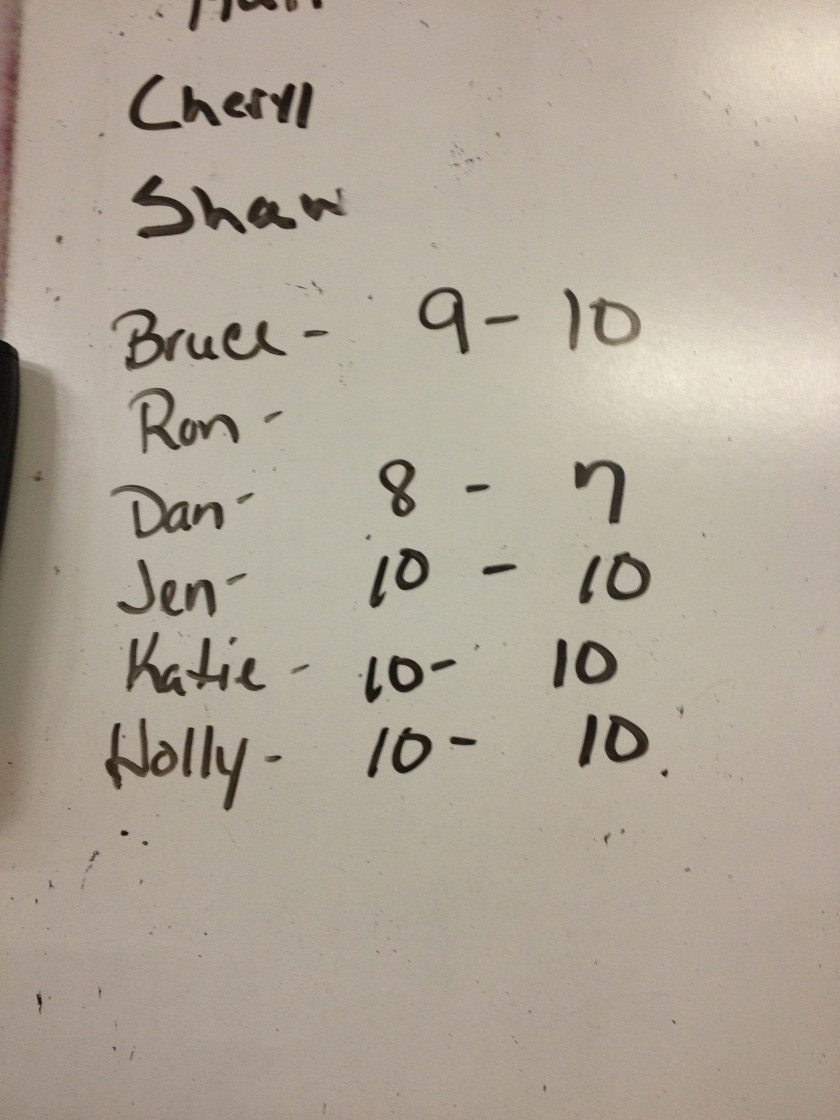 Cheryl
Shaw
Bruce - 9 - 10
Ron -
Dan - 8 - 7
Jen - 10 - 10
Katie - 10 - 10
Holly - 10 - 10